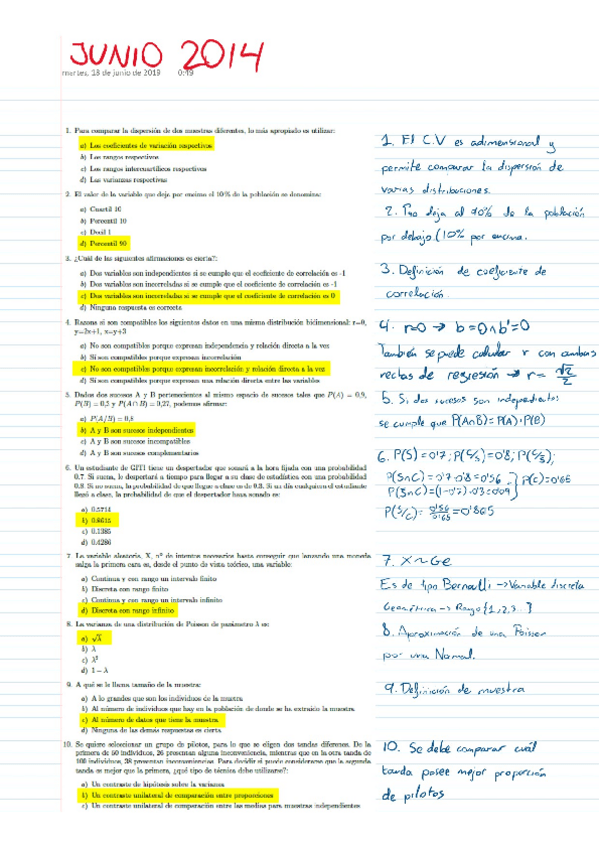 JUNIO 2014
martes, 18 de junio de 2019 0:49
1. Para comparar la dispersión de dos muestras diferentes, lo más apropiado es utilizar:
a) Los coeficientes de variación respectivos
b) Los rangos respectivos
c) Los rangos intercuartílicos respectivos
d) Las varianzas respectivas
1. El C.V es adimensional y
permite comparar la dispersión de
varias distribuciones.
2. El valor de la variable que deja por encima el 10% de la población se denomina:
a) Cuartil 10
b) Percentil 10
c) Decil 1
d) Percentil 90
2. deja al 90% de la población
por debajo (10% por encima.
3. ¿Cuál de las siguientes afirmaciones es cierta?:
a) Dos variables son independientes si se cumple que el coeficiente de correlación es -1
b) Dos variables son incorreladas si se cumple que el coeficiente de correlación es -1
c) Dos variables son incorreladas si se cumple que el coeficiente de correlación es 0
d) Ninguna respuesta es correcta
3. Definición de coeficiente de
correlación.
4. Razona si son compatibles los siguientes datos en una misma distribución bidimensional: r=0,
y=2x+1, x=y+3
a) No son compatibles porque expresan independencia y relación directa a la vez
b) Si son compatibles porque expresan incorrelación
c) No son compatibles porque expresan incorrelación y relación directa a la vez
d) Si son compatibles porque expresan una relación directa entre las variables
4. r=0 → b=0 ∧ b'=0
También se puede calcular r con ambas
rectas de regresión → r = √2/2
5. Dados dos sucesos A y B pertenecientes al mismo espacio de sucesos tales que P(A) = 0,9,
P(B) = 0,3 y P(A ∩ B) = 0,27, podemos afirmar:
a) P(A/B) = 0,8
b) A y B son sucesos independientes
c) A y B son sucesos incompatibles
d) A y B son sucesos complementarios
5. Si dos sucesos son independientes
se cumple que P(A∩B)=P(A)·P(B)
6. Un estudiante de GITI tiene un despertador que sonará a la hora fijada con una probabilidad
0.7. Si suena, le despertará a tiempo para llegar a su clase de estadística con una probabilidad
0.8. Si no suena, la probabilidad de que llegue a clase es de 0.3. Si un día cualquiera el estudiante
llegó a clase, la probabilidad de que el despertador haya sonado es:
a) 0.5714
b) 0.8615
c) 0.1385
d) 0.4286
6. P(S)=0'7; P(C/S)=0'8;
P(S∩C)=0'7·0'8=0'56
P(S∩C)=(1-0'7)·0'3=0'09 P(C)=0'65
P(S/C)=0'56/0'65=0'865
7. La variable aleatoria, X, nº de intentos necesarios hasta conseguir que lanzando una moneda
salga la primera cara es, desde el punto de vista teórico, una variable:
a) Continua y con rango un intervalo finito
b) Discreta con rango finito
c) Continua y con rango un intervalo infinito
d) Discreta con rango infinito
7. X~Ge
Es de tipo Bernoulli → Variable discreta
Geométrica → Rango {1,2,3..}
8. La varianza de una distribución de Poisson de parámetro λ es:
a) √λ
b) λ
c) λ²
d) 1 − λ
8. Aproximación de una Poisson
por una Normal.
9. A qué se le llama tamaño de la muestra:
a) A lo grandes que son los individuos de la muestra
b) Al número de individuos que hay en la población de donde se ha extraído la muestra
c) Al número de datos que tiene la muestra
d) Ninguna de las demás respuestas es cierta
9. Definición de muestra
10. Se quiere seleccionar un grupo de pilotos, para lo que se eligen dos tandas diferentes. De la
primera de 50 individuos, 26 presentan alguna inconveniencia, mientras que en la otra tanda de
100 individuos, 38 presentan inconveniencias. Para decidir si puede considerarse que la segunda
tanda es mejor que la primera, ¿qué tipo de técnica debe utilizarse?:
a) Un contraste de hipótesis sobre la varianza
b) Un contraste unilateral de comparación entre proporciones
c) Un contraste unilateral de comparación entre las medias para muestras independientes
10. Se debe comparar cuál
tanda posee mejor proporción
de pilotos